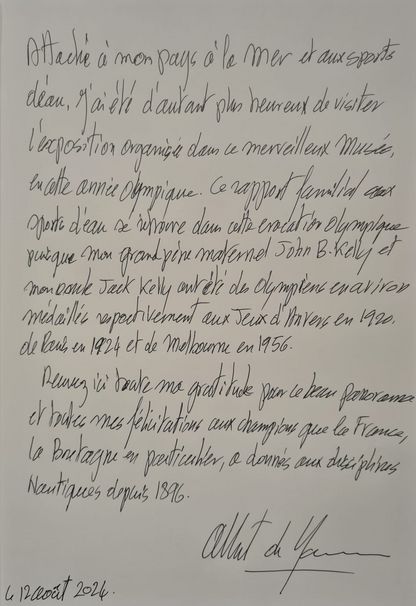 Attaché à mon pays à la mer et aux sports
d'eau, j'ai été d'autant plus heureux de visiter
l'exposition organisée dans ce merveilleux Musée,
en cette année Olympique. Ce rapport familial aux
sports d'eau se retrouve dans cette évocation Olympique
puisque mon grand père maternel John B. Kelly et
mon oncle Jack Kelly ont été des Olympiens en aviron
médaillés respectivement aux Jeux d'Anvers en 1920,
de Paris en 1924 et de Melbourne en 1956.
Recevez ici toute ma gratitude pour ce beau panorama
et toutes mes félicitations aux champions que la France,
la Bretagne en particulier, a donnés aux disciplines
Nautiques depuis 1896.
Albert de
Le 12 Août 2024.